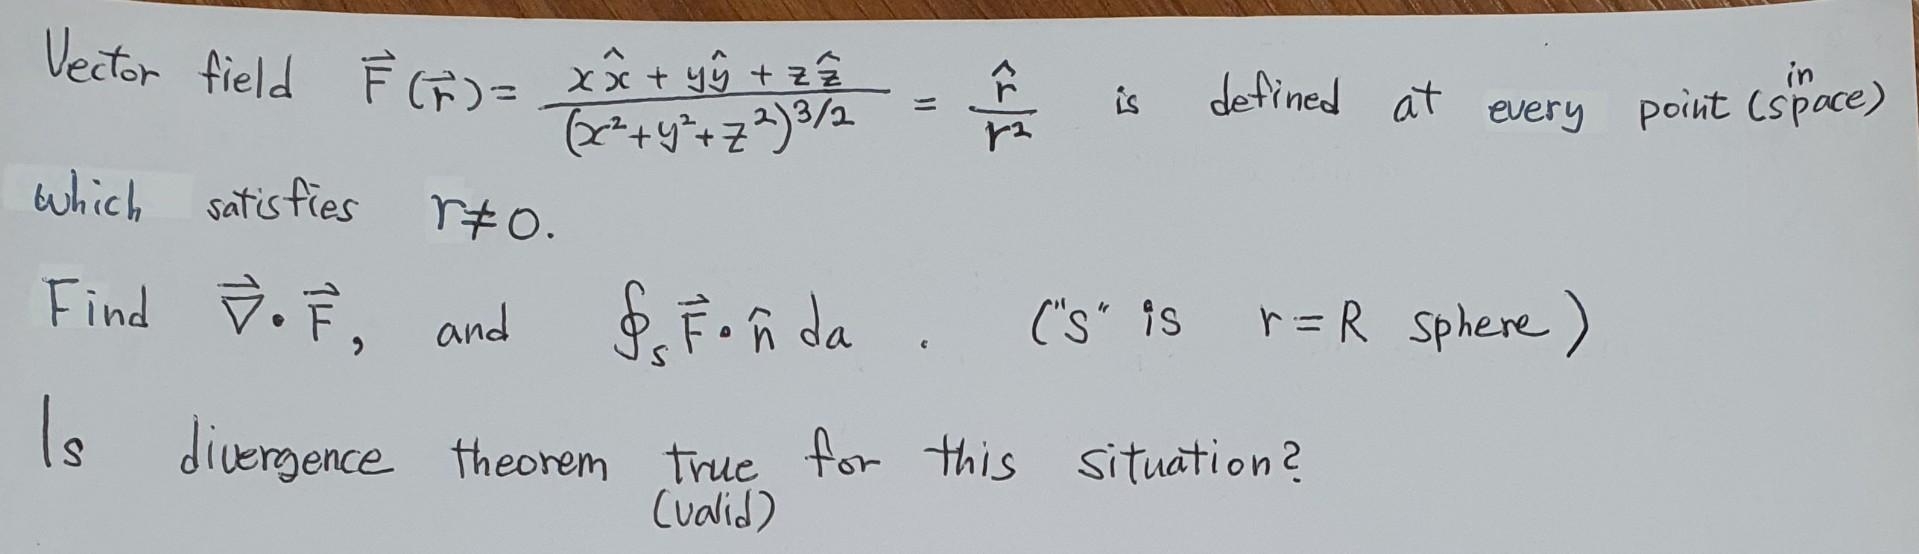 Vector field F⃗(r⃗) = (x x̂ + y ŷ + z ẑ) / (x² + y² + z²)^{3/2} = r̂ / r² is defined at every point (in space)
which satisfies r≠0.
Find ∇⃗·F⃗, and ∮ₛ F⃗·n̂ da . ("S" is r=R sphere)
Is divergence theorem true for this situation?
(valid)